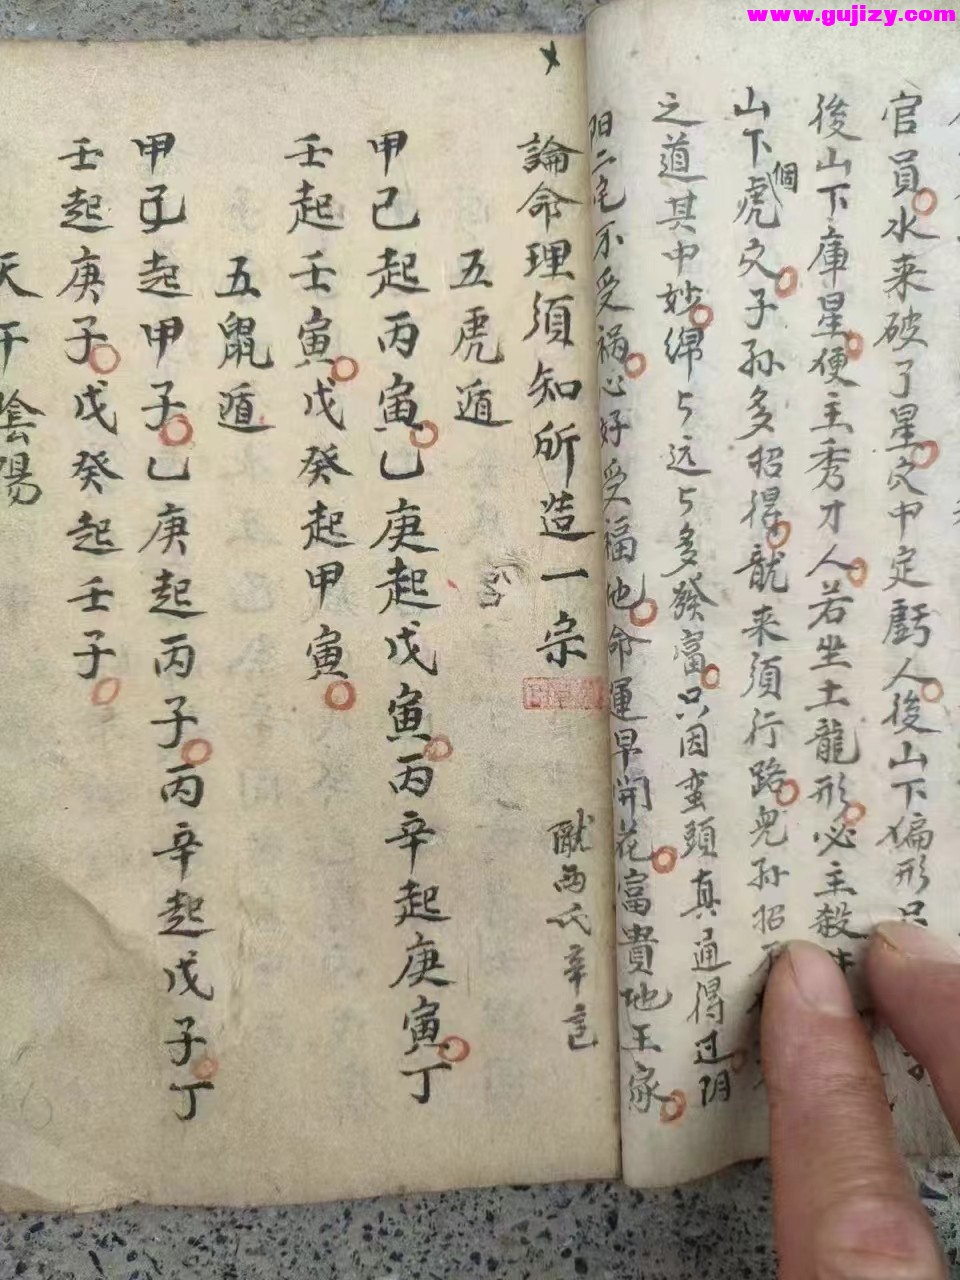 www.gujizy.com
官員水来破了星穴中定虧人後山下偏形
後山下庫星便主秀才人若坐土龍形必主殺
山下個虎文子孫多招得龍来須行路兒孫招
之道其中妙绵与远与多發富只因蛮頭真通得过阴
阳二宅不受祸心好受福地命運早開花富貴地王家
論命理須知所造一宗
五虎遁
甲己起丙寅乙庚起戊寅丙辛起庚寅丁
壬起壬寅戊癸起甲寅
五鼠遁
甲己起甲子乙庚起丙子丙辛起戊子丁
壬起庚子戊癸起壬子
天干陰陽